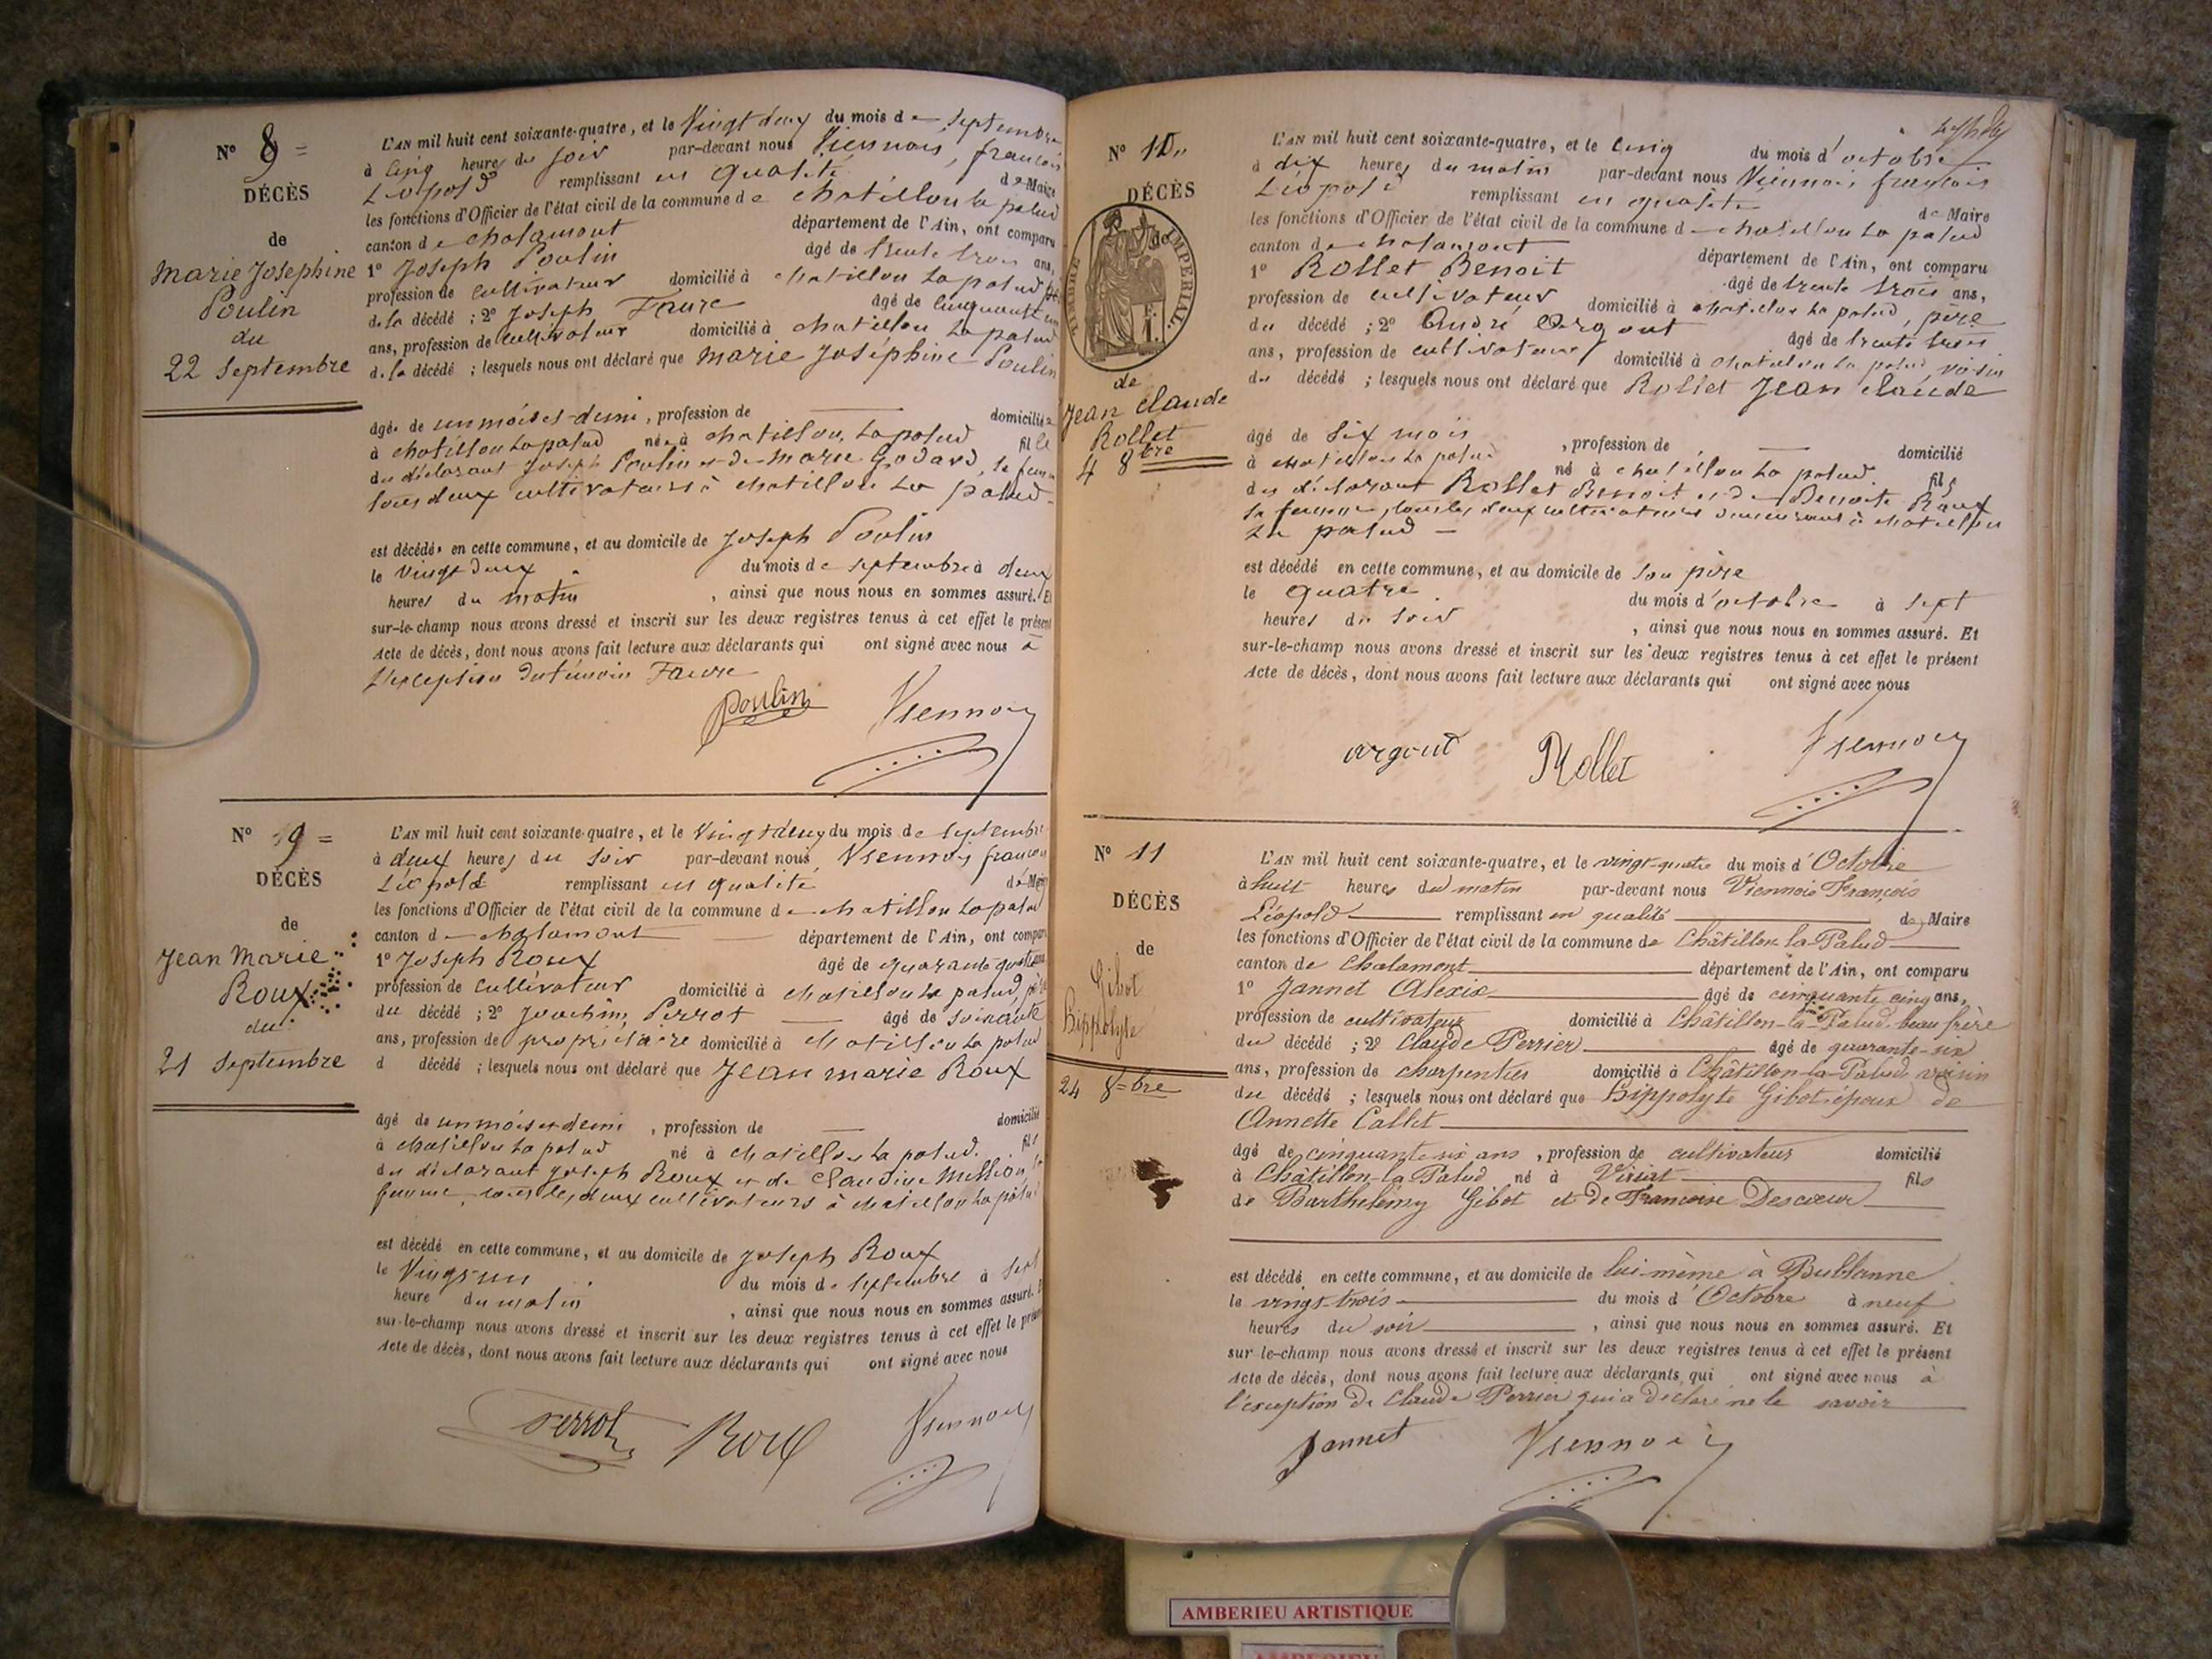 N° 8 =
DÉCÈS
de
Marie Josephine
Poulin
du
22 Septembre
L'AN mil huit cent soixante-quatre, et le Vingt deux du mois de septembre
à cinq heures du soir par-devant nous Viennois, françois
Léopold remplissant en qualité de Maire
les fonctions d'Officier de l'état civil de la commune de chatillon la palud
canton de chalamont département de l'Ain, ont comparu
1° Joseph Poulin âgé de trente trois ans,
profession de cultivateur domicilié à chatillon la palud
de la décédé ; 2° Joseph Faure âgé de cinquante
ans, profession de cultivateur domicilié à chatillon la palud
d. la décédé ; lesquels nous ont déclaré que Marie Joséphine Poulin
âgée de un mois et demi, profession de — domiciliée
à chatillon la palud née à chatillon la palud fille
du déclarant Joseph Poulin et de Marie Godard, sa femme
tous deux cultivateurs à chatillon la palud
est décédée en cette commune, et au domicile de Joseph Poulin
le vingt deux du mois de septembre à deux
heures du matin, ainsi que nous nous en sommes assuré. Et
sur-le-champ nous avons dressé et inscrit sur les deux registres tenus à cet effet le présent
Acte de décès, dont nous avons fait lecture aux déclarants qui ont signé avec nous à
l'exception du témoin Faure
Poulin Viennois
N° 9 =
DÉCÈS
de
Jean Marie
Roux
du
21 Septembre
L'AN mil huit cent soixante-quatre, et le vingt deux du mois de septembre
à deux heures du soir par-devant nous Viennois françois
Léopold remplissant en qualité de Maire
les fonctions d'Officier de l'état civil de la commune de chatillon la palud
canton de chalamont département de l'Ain, ont comparu
1° Joseph Roux âgé de quarante quatre
profession de cultivateur domicilié à chatillon la palud, père
du décédé ; 2° Joachim Perrot — âgé de soixante
ans, profession de propriétaire domicilié à chatillon la palud
d décédé ; lesquels nous ont déclaré que Jean marie Roux
âgé de un mois et demi, profession de — domicilié
à chatillon la palud né à chatillon la palud. fils
du déclarant Joseph Roux et de Claudine
femme, tous les deux cultivateurs à chatillon la palud
est décédé en cette commune, et au domicile de Joseph Roux
le vingt un du mois de septembre à sept
heure du matin, ainsi que nous nous en sommes assuré. Et
sur-le-champ nous avons dressé et inscrit sur les deux registres tenus à cet effet le présent
Acte de décès, dont nous avons fait lecture aux déclarants qui ont signé avec nous
Perrot Roux Viennois
N° 10
DÉCÈS
TIMBRE IMPÉRIAL.
de
Jean Claude
Rollet
4 8bre
L'AN mil huit cent soixante-quatre, et le cinq du mois d'octobre
à dix heures du matin par-devant nous Viennois françois
Léopold remplissant en qualité de Maire
les fonctions d'Officier de l'état civil de la commune de chatillon la palud
canton de chalamont département de l'Ain, ont comparu
1° Rollet Benoit âgé de trente trois ans,
profession de cultivateur domicilié à chatillon la palud, père
du décédé ; 2° André Argout âgé de trente trois
ans, profession de cultivateur domicilié à chatillon la palud voisin
du décédé ; lesquels nous ont déclaré que Rollet Jean claude
âgé de six mois, profession de — domicilié
à chatillon la palud né à chatillon la palud fils
du déclarant Rollet Benoit et de Benoite Roux
sa femme, tous les deux cultivateurs demeurant à chatillon
la palud —
est décédé en cette commune, et au domicile de son père
le quatre du mois d'octobre à sept
heures du soir, ainsi que nous nous en sommes assuré. Et
sur-le-champ nous avons dressé et inscrit sur les deux registres tenus à cet effet le présent
Acte de décès, dont nous avons fait lecture aux déclarants qui ont signé avec nous
argout Rollet Viennois
N° 11
DÉCÈS
de
Gibot
Hippolyte
24 8=bre
L'AN mil huit cent soixante-quatre, et le vingt-quatre du mois d'Octobre
à huit heures du matin par-devant nous Viennois François
Léopold remplissant en qualité de Maire
les fonctions d'Officier de l'état civil de la commune de Châtillon-la-Palud
canton de Chalamont département de l'Ain, ont comparu
1° Jannet Alexis âgé de cinquante cinq ans,
profession de cultivateur domicilié à Châtillon-la-Palud beau frère
du décédé ; 2° Claude Perrier âgé de quarante-six
ans, profession de charpentier domicilié à Châtillon-la-Palud voisin
du décédé ; lesquels nous ont déclaré que Hippolyte Gibot époux de
Annette Callet
âgé de cinquante six ans, profession de cultivateur domicilié
à Châtillon-la-Palud né à Viriat fils
de Barthélemy Gibot et de Françoise Descoeur
est décédé en cette commune, et au domicile de lui-même à Bublanne
le vingt-trois du mois d'Octobre à neuf
heures du soir, ainsi que nous nous en sommes assuré. Et
sur-le-champ nous avons dressé et inscrit sur les deux registres tenus à cet effet le présent
Acte de décès, dont nous avons fait lecture aux déclarants qui ont signé avec nous à
l'exception de Claude Perrier qui a déclaré ne le savoir
Jannet Viennois
AMBERIEU ARTISTIQUE
AMBERIEU